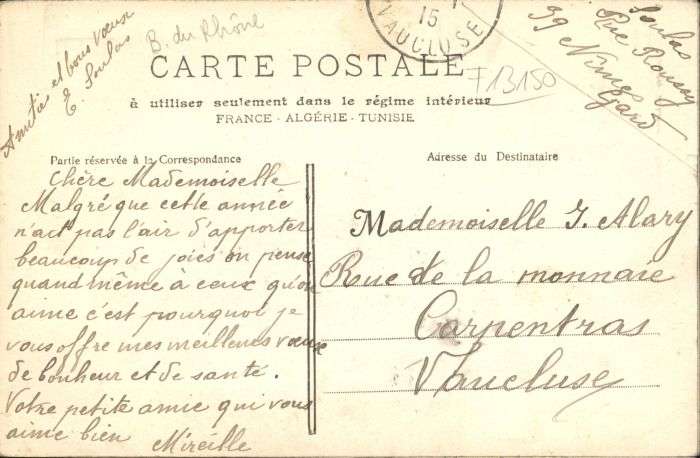 Amitiés et bons vœux
E. Soulas
B. du Rhône
15
VAUCLUSE
F13150
Soulas
Rue Roussy
39 Nimes
Gard
CARTE POSTALE
à utiliser seulement dans le régime intérieur
FRANCE - ALGÉRIE - TUNISIE
Partie réservée à la Correspondance
Chère Mademoiselle
Malgré que cette année
n'ait pas l'air d'apporter
beaucoup de joies on pense
quand même à ceux qu'on
aime c'est pourquoi je
vous offre mes meilleures vœux
de bonheur et de santé.
Votre petite amie qui vous
aime bien
Mireille
Adresse du Destinataire
Mademoiselle J. Alary
Rue de la monnaie
Carpentras
Vaucluse